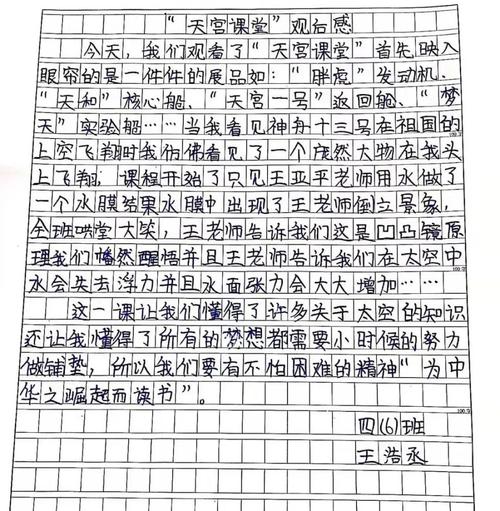 “天宫课堂”观后感
今天，我们观看了“天宫课堂”首先映入
眼帘的是一件件的展品如：“胖亮”发动机、
“天和”核心舱、“天宫一号”返回舱、“梦
天”实验舱……当我看见神舟十三号在祖国的
上空飞翔时我仿佛看见了一个庞然大物在我头
上飞翔；课程开始了只见王亚平老师用水做了
一个水膜结果水膜中出现了王老师倒立景象，
全班哄堂大笑，王老师告诉我们这是凹凸镜原
理我们幡然醒悟并且王老师告诉我们在太空中
水会失去浮力并且水面张力会大大增加……
这一课让我们懂得了许多关于太空的知识
还让我懂得了所有的梦想都需要小时候的努力
做铺垫，所以我们要有不怕困难的精神“为中
华之崛起而读书”。
四(6)班
王浩丞